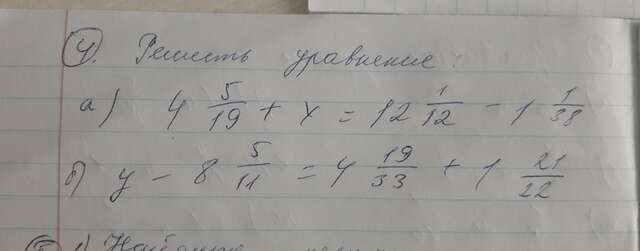 4. Решить уравнение:
а) 4 5/19 + x = 12 1/12 - 1 1/38
б) y - 8 5/11 = 4 19/33 + 1 21/22